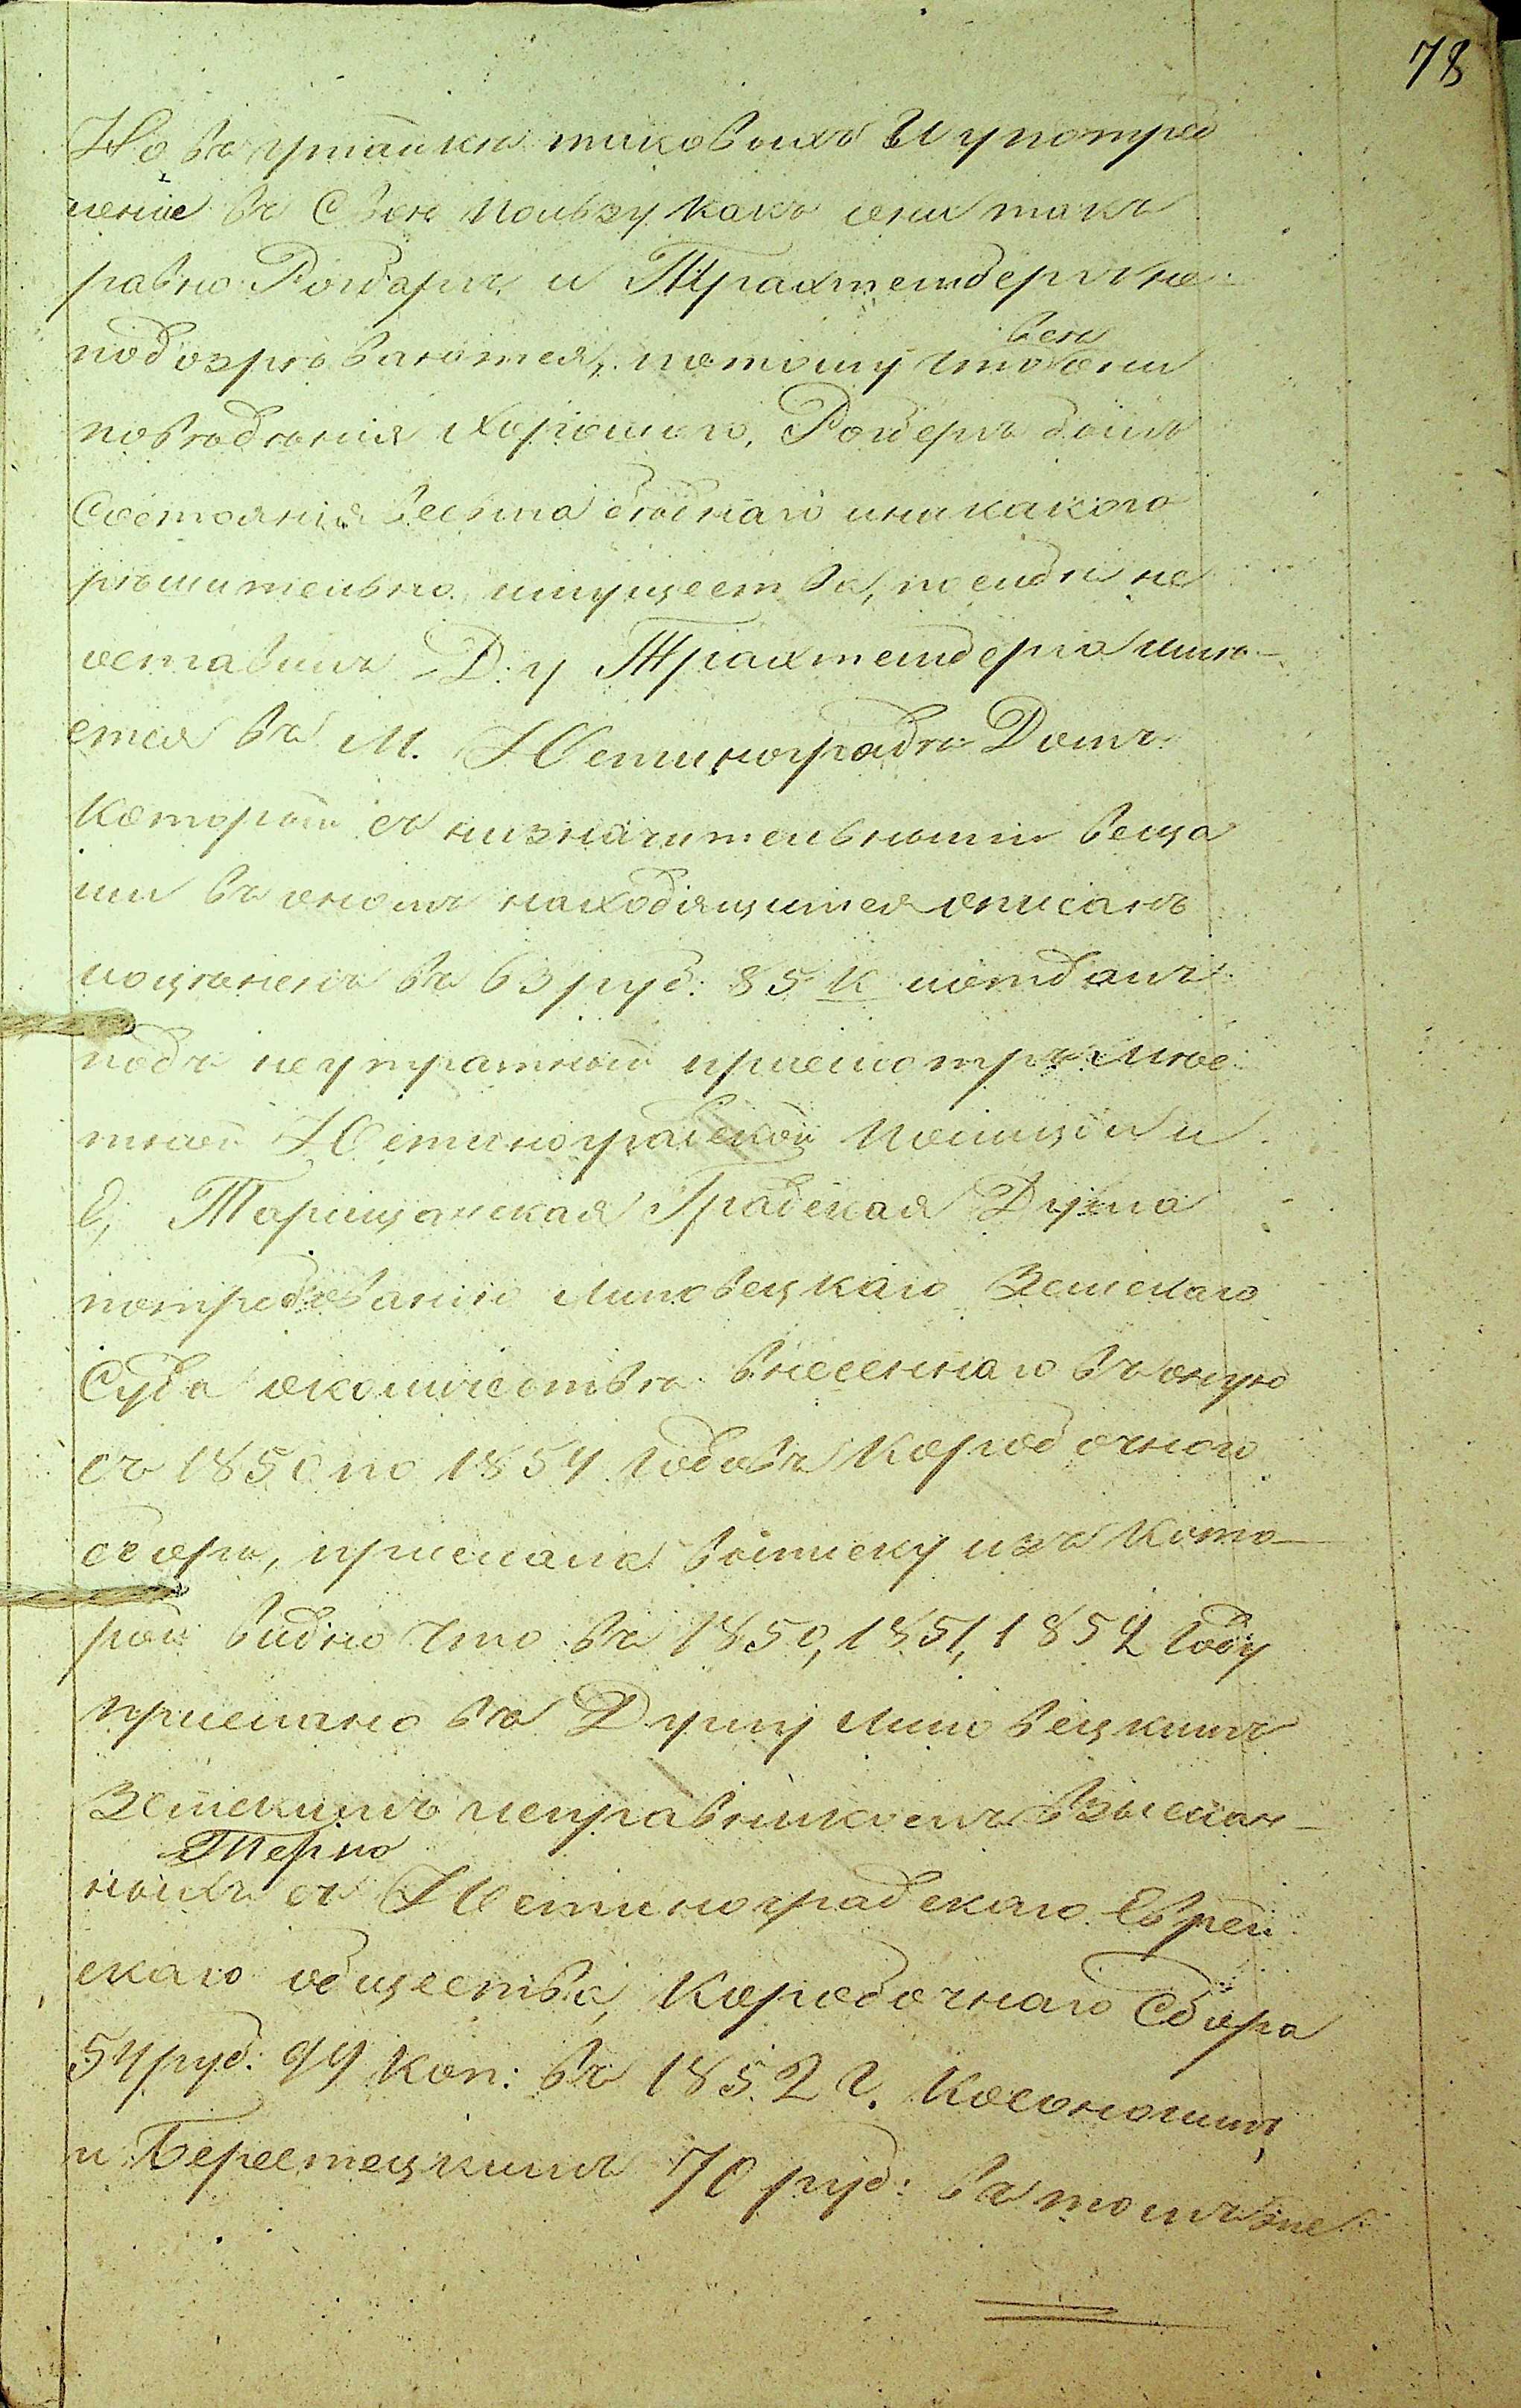 78
Но въ утайки таковыхъ и употреб
ленiе въ свою пользу какъ они такъ
равно Ройзеръ и Трахтенбергъ не
подозрѣваются, потому что всѣ они
поведенiя хорошаго, Ройзеръ былъ
Состоянiя весьма бѣднаго и никакого
рѣшительно имущества, послѣ себя не
оставилъ Д. у Трахтенберга имѣ-
ется въ М. Юстинградѣ Домъ
который съ незначительными веща
ми въ ономъ находящимися описанъ
и оцѣненъ въ 63 руб: 85 к и отданъ
подъ неутратный присмотръ мѣс
тной Юстинградской Полицiи и
Е, Таращанская Градская Дума
по требованiю Липовецкаго Земскаго
Суда о количествѣ внесеннаго въ оную
съ 1850 по 1854 годъ Коробочнаго
сбора, прислала выписку изъ Кото-
рой видно что въ 1850, 1851, 1852 году
прислано въ Думу Липовецкимъ
Земскимъ исправникомъ взыскан-
ныхъ съ Терно Юстинградскаго Еврей
скаго общества, Коробочнаго Сбора
54 руб: 99 Коп: въ 1852 г. Косономъ
и Берестецкимъ 70 руб: въ томъ же